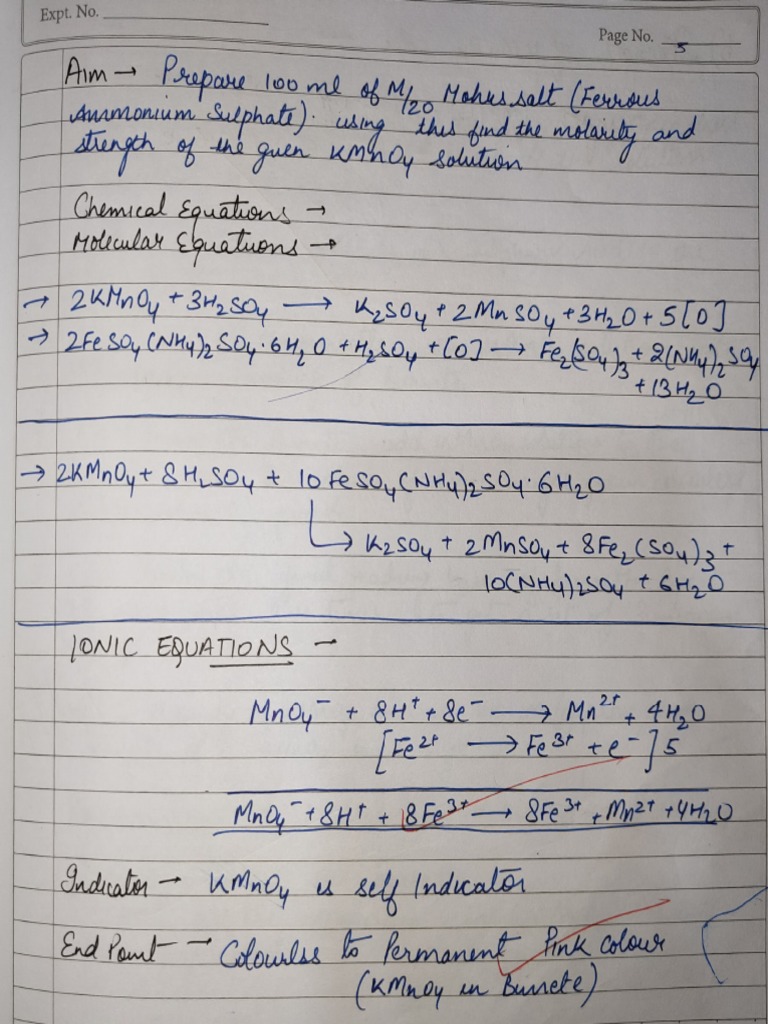 Expt. No.
Page No. 5
Aim → Prepare 100 ml of M/20 Mohus salt (Ferrous
Ammonium Sulphate). using this find the molarity and
strength of the guen KMnO₄ solution
Chemical Equations →
Molecular Equations →
→ 2KMnO₄ + 3H₂SO₄ → K₂SO₄ + 2MnSO₄ + 3H₂O + 5[O]
→ 2FeSO₄(NH₄)₂SO₄·6H₂O + H₂SO₄ + [O] → Fe₂(SO₄)₃ + 2(NH₄)₂SO₄
+ 13H₂O
→ 2KMnO₄ + 8H₂SO₄ + 10FeSO₄(NH₄)₂SO₄·6H₂O
↳ K₂SO₄ + 2MnSO₄ + 8Fe₂(SO₄)₃ +
10(NH4)₂SO₄ + 6H₂O
IONIC EQUATIONS -
MnO₄⁻ + 8H⁺ + 8e⁻ → Mn²⁺ + 4H₂O
[Fe²⁺ → Fe³⁺ + e⁻] 5
MnO₄⁻ + 8H⁺ + 8Fe³⁺ → 8Fe³⁺ + Mn²⁺ + 4H₂O
Indicator → KMnO₄ is self Indicator
End Point → Colourlss to Permanent Pink colour
(KMnO₄ in Burrete)